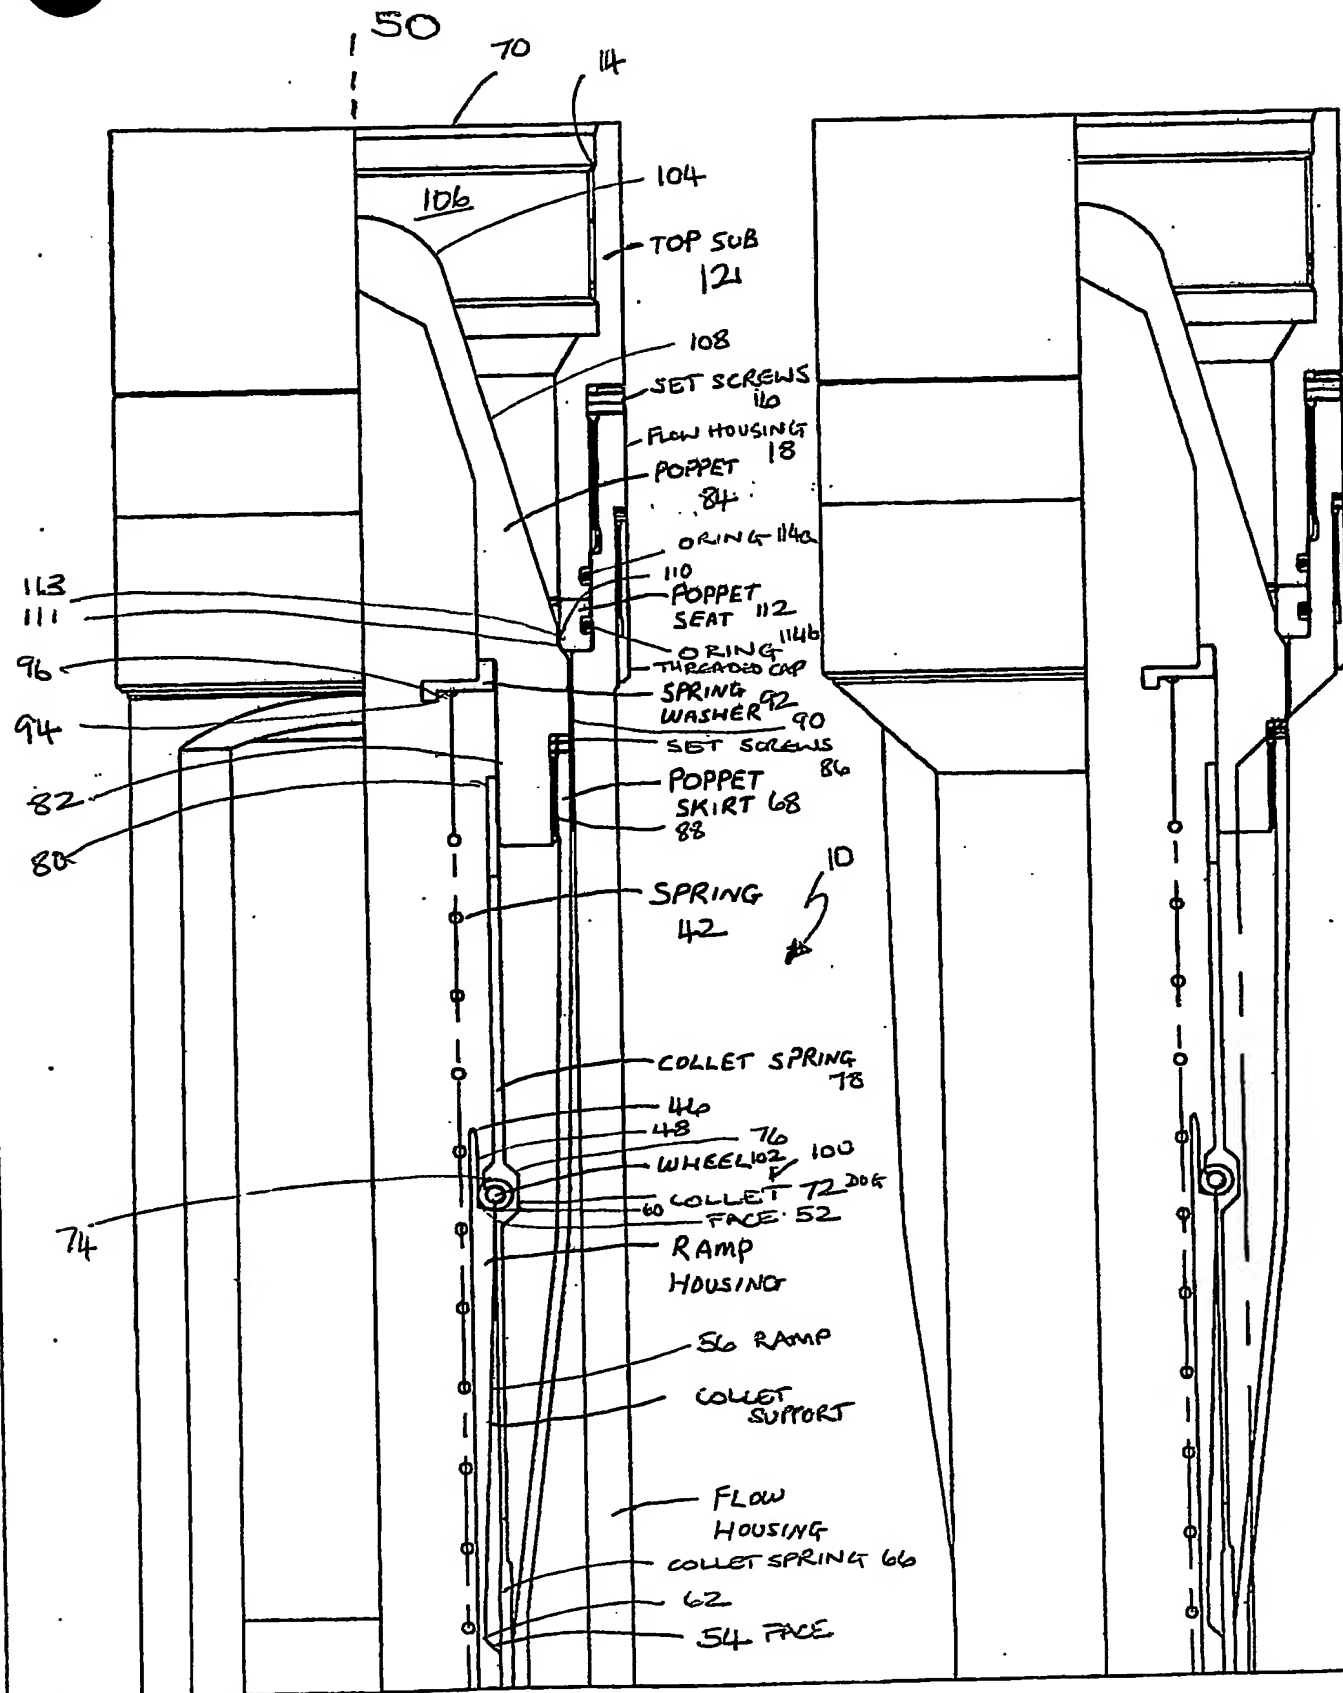 50
70
14
104
106
TOP SUB
12
108
SET SCREWS
16
FLOW HOUSING
18
POPPET
84
O RING 114a
110
113
POPPET
SEAT 112
111
O RING 114b
96
THREADED CAP
SPRING
WASHER 92
94
90
SET SCREWS
86
82
POPPET
SKIRT 68
88
80
10
SPRING
42
COLLET SPRING
78
46
48
76
WHEEL 102
100
COLLET 72 DOG
60
FACE 52
74
RAMP
HOUSING
56 RAMP
COLLET
SUPPORT
FLOW
HOUSING
COLLET SPRING 66
62
54 FACE